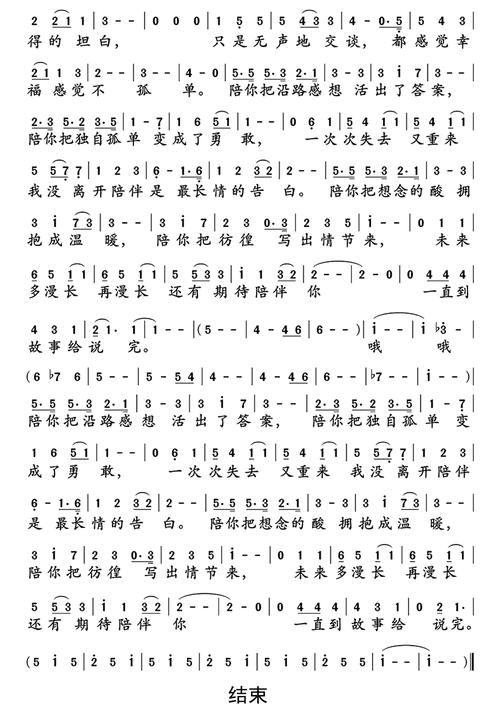 2 2 1 1 | 3 - - | 0 0 0 | 1 5 5 | 5 4 3 3 | 4 - 0 5 | 5 4 3
得的 坦白， 只是无声地 交谈， 都感觉幸
2 1 1 3 | 2 - - | 3 - - | 4 - 0 | 5·5 5·3 2·1 | 3 - 3 | 3 i 7 | 3 - -
福感觉不 孤 单。 陪你把沿路感想 活出了答案，
2·3 5·2 3·5 | 1 - 7 | 1 6 5 1 | 1 - - | 0 1 2 | 5 4 1 1 | 5 2 1 1
陪你把独自孤单 变成了勇 敢， 一次次失去 又重来
5 5 7 7 | 5 1 2 | 6 - 1·6 | 1 2 3 2 | 2 - - | 5·5 5·3 2·1 | 3 - 3
我没 离开陪伴是 最长情的告 白。 陪你把想念的酸 拥
3 i 7 3 | 3 - - | 3 i 7 | 2 3 0·3 | 2 3 5 | i - - | 0 1 1
抱成温 暖， 陪你把彷徨 写出情节来， 未来
6 5 1 1 | 6 5 1 1 | 5 5 3 3 | 1 3 2 | 2 - - | 2 - 0 | 0 4 4 4
多漫长 再漫长 还有 期待陪伴 你 一直到
4 3 1 | 2 1· 1 | 1 - - | (5 - - | 4 - 4 6 | 6 - -) | i - - | i - ♭3
故事给 说 完。 哦 哦
(6 ♭7 6 | 5 - - | 5 - 5 4 | 4 - - | 4 - 4 6 | 6 - - | ♭7 - - | i - -)
5·5 5·3 2·1 | 3 - 3 | 3 i 7 | 3 - - | 2·3 5·2 3·5 | 1 - 7
陪你把沿路感 想 活出了答案， 陪你把独自孤单 变
1 6 5 1 | 1 - - | 0 1 2 | 5 4 1 1 | 5 2 1 1 | 5 5 7 7 | 5 1 2
成了勇 敢， 一次 次失去 又重来 我没 离开陪伴
6 - 1·6 | 1 2 3 2 | 2 - - | 5·5 5·3 2·1 | 3 - 3 | 3 i 7 3 | 3 - -
是 最长情的告 白。 陪你把想念的酸 拥抱成温 暖，
3 i 7 | 2 3 0·3 | 2 3 5 | i - - | 0 1 1 | 6 5 1 1 | 6 5 1 1
陪你把彷徨 写出情节来， 未来多漫长 再漫长
5 5 3 3 | 1 3 2 | 2 - - | 2 - 0 | 0 4 4 4 | 4 3 1 | 0 2 1·
还有 期待陪伴 你 一直到故事给 说完。
(5 i 5 | 2 5 i | 5 i 5 | i 5 i | 2 5 i | 5 2 5 | i - - | i - -)
结束